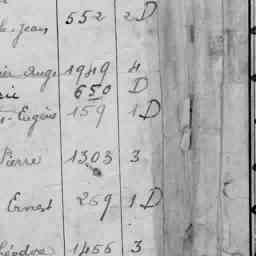 Jean 552 2D
Ange 1949 4
650 D
Eugène 159 1D
Pierre 1303 3
Ernest 269 1D
Théodore 1455 3